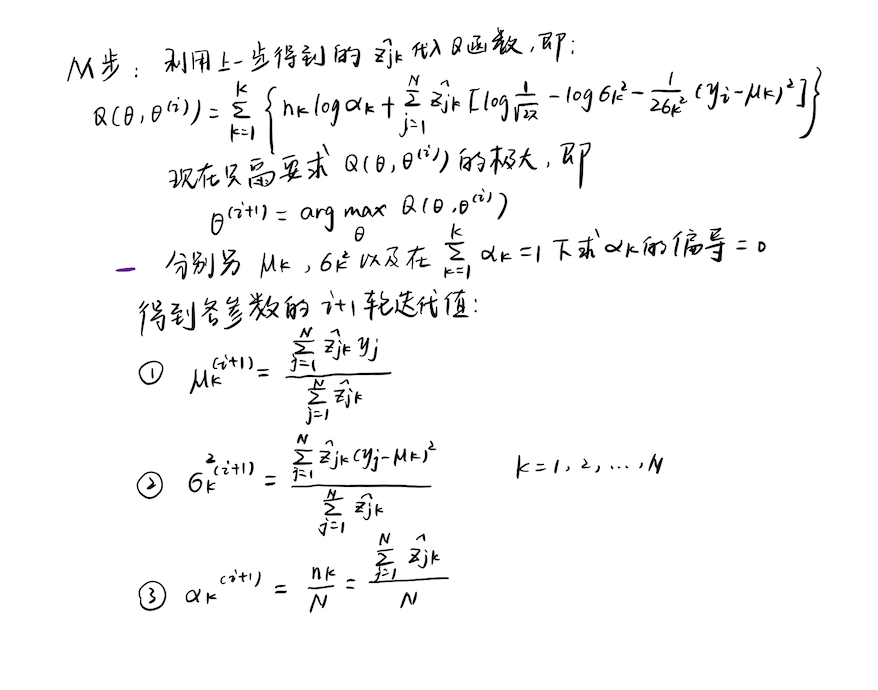 M步：利用上一步得到的 ẑjk 代入Q函数，即：
Q(θ,θ^(i)) = Σ_{k=1}^{K} { nk log αk + Σ_{j=1}^{N} ẑjk [log 1/√2π - log σk² - 1/2σk² (yi-μk)²] }
现在只需要求 Q(θ,θ^(i)) 的极大，即
θ^(i+1) = arg max_θ Q(θ,θ^(i))
- 分别另 μk, σk² 以及在 Σ_{k=1}^{K} αk = 1 下求αk的偏导 = 0
得到各参数的 i+1 轮迭代值：
① μk^(i+1) = Σ_{j=1}^{N} ẑjk yj / Σ_{j=1}^{N} ẑjk
② σk²^(i+1) = Σ_{j=1}^{N} ẑjk (yj-μk)² / Σ_{j=1}^{N} ẑjk k=1,2,…,N
③ αk^(i+1) = nk/N = Σ_{j=1}^{N} ẑjk / N